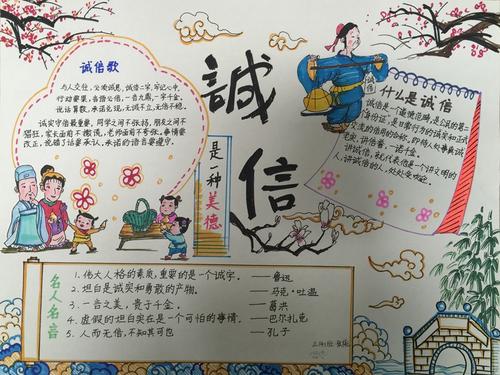 誠信
是一种美德
诚信歌
与人交往,必须诚恳,诚信二字,牢记心中,
行动要里,言信必信,一言九鼎,一字千金。
说话算数,承诺兑现,无诚不立,无信不稳。
诚实守信最重要,同学之间不张扬,朋友之间不
猖狂,家长面前不撒谎,老师面前不夸张,事情要
改正,说错了话要承认,承诺的语言要遵守。
诚信
什么是诚信
诚信是一个道德范畴,是公民的第二
个身份证,是日常行为的诚实和正式
交流的信用的合称,即待人处事真诚
老实、讲信誉、一诺千金。
讲诚信,就代表你是一个讲文明的
人,讲诚信的人,处处受欢迎。
名人名言
1. 伟大人格的素质,重要的是一个诚字。——鲁迅
2. 坦白是诚实和勇敢的产物。——马克·吐温
3. 一言之美,贵于千金。——葛洪
4. 虚假的坦白实在是一个可怕的事情。——巴尔扎克
5. 人而无信,不知其可也——孔子